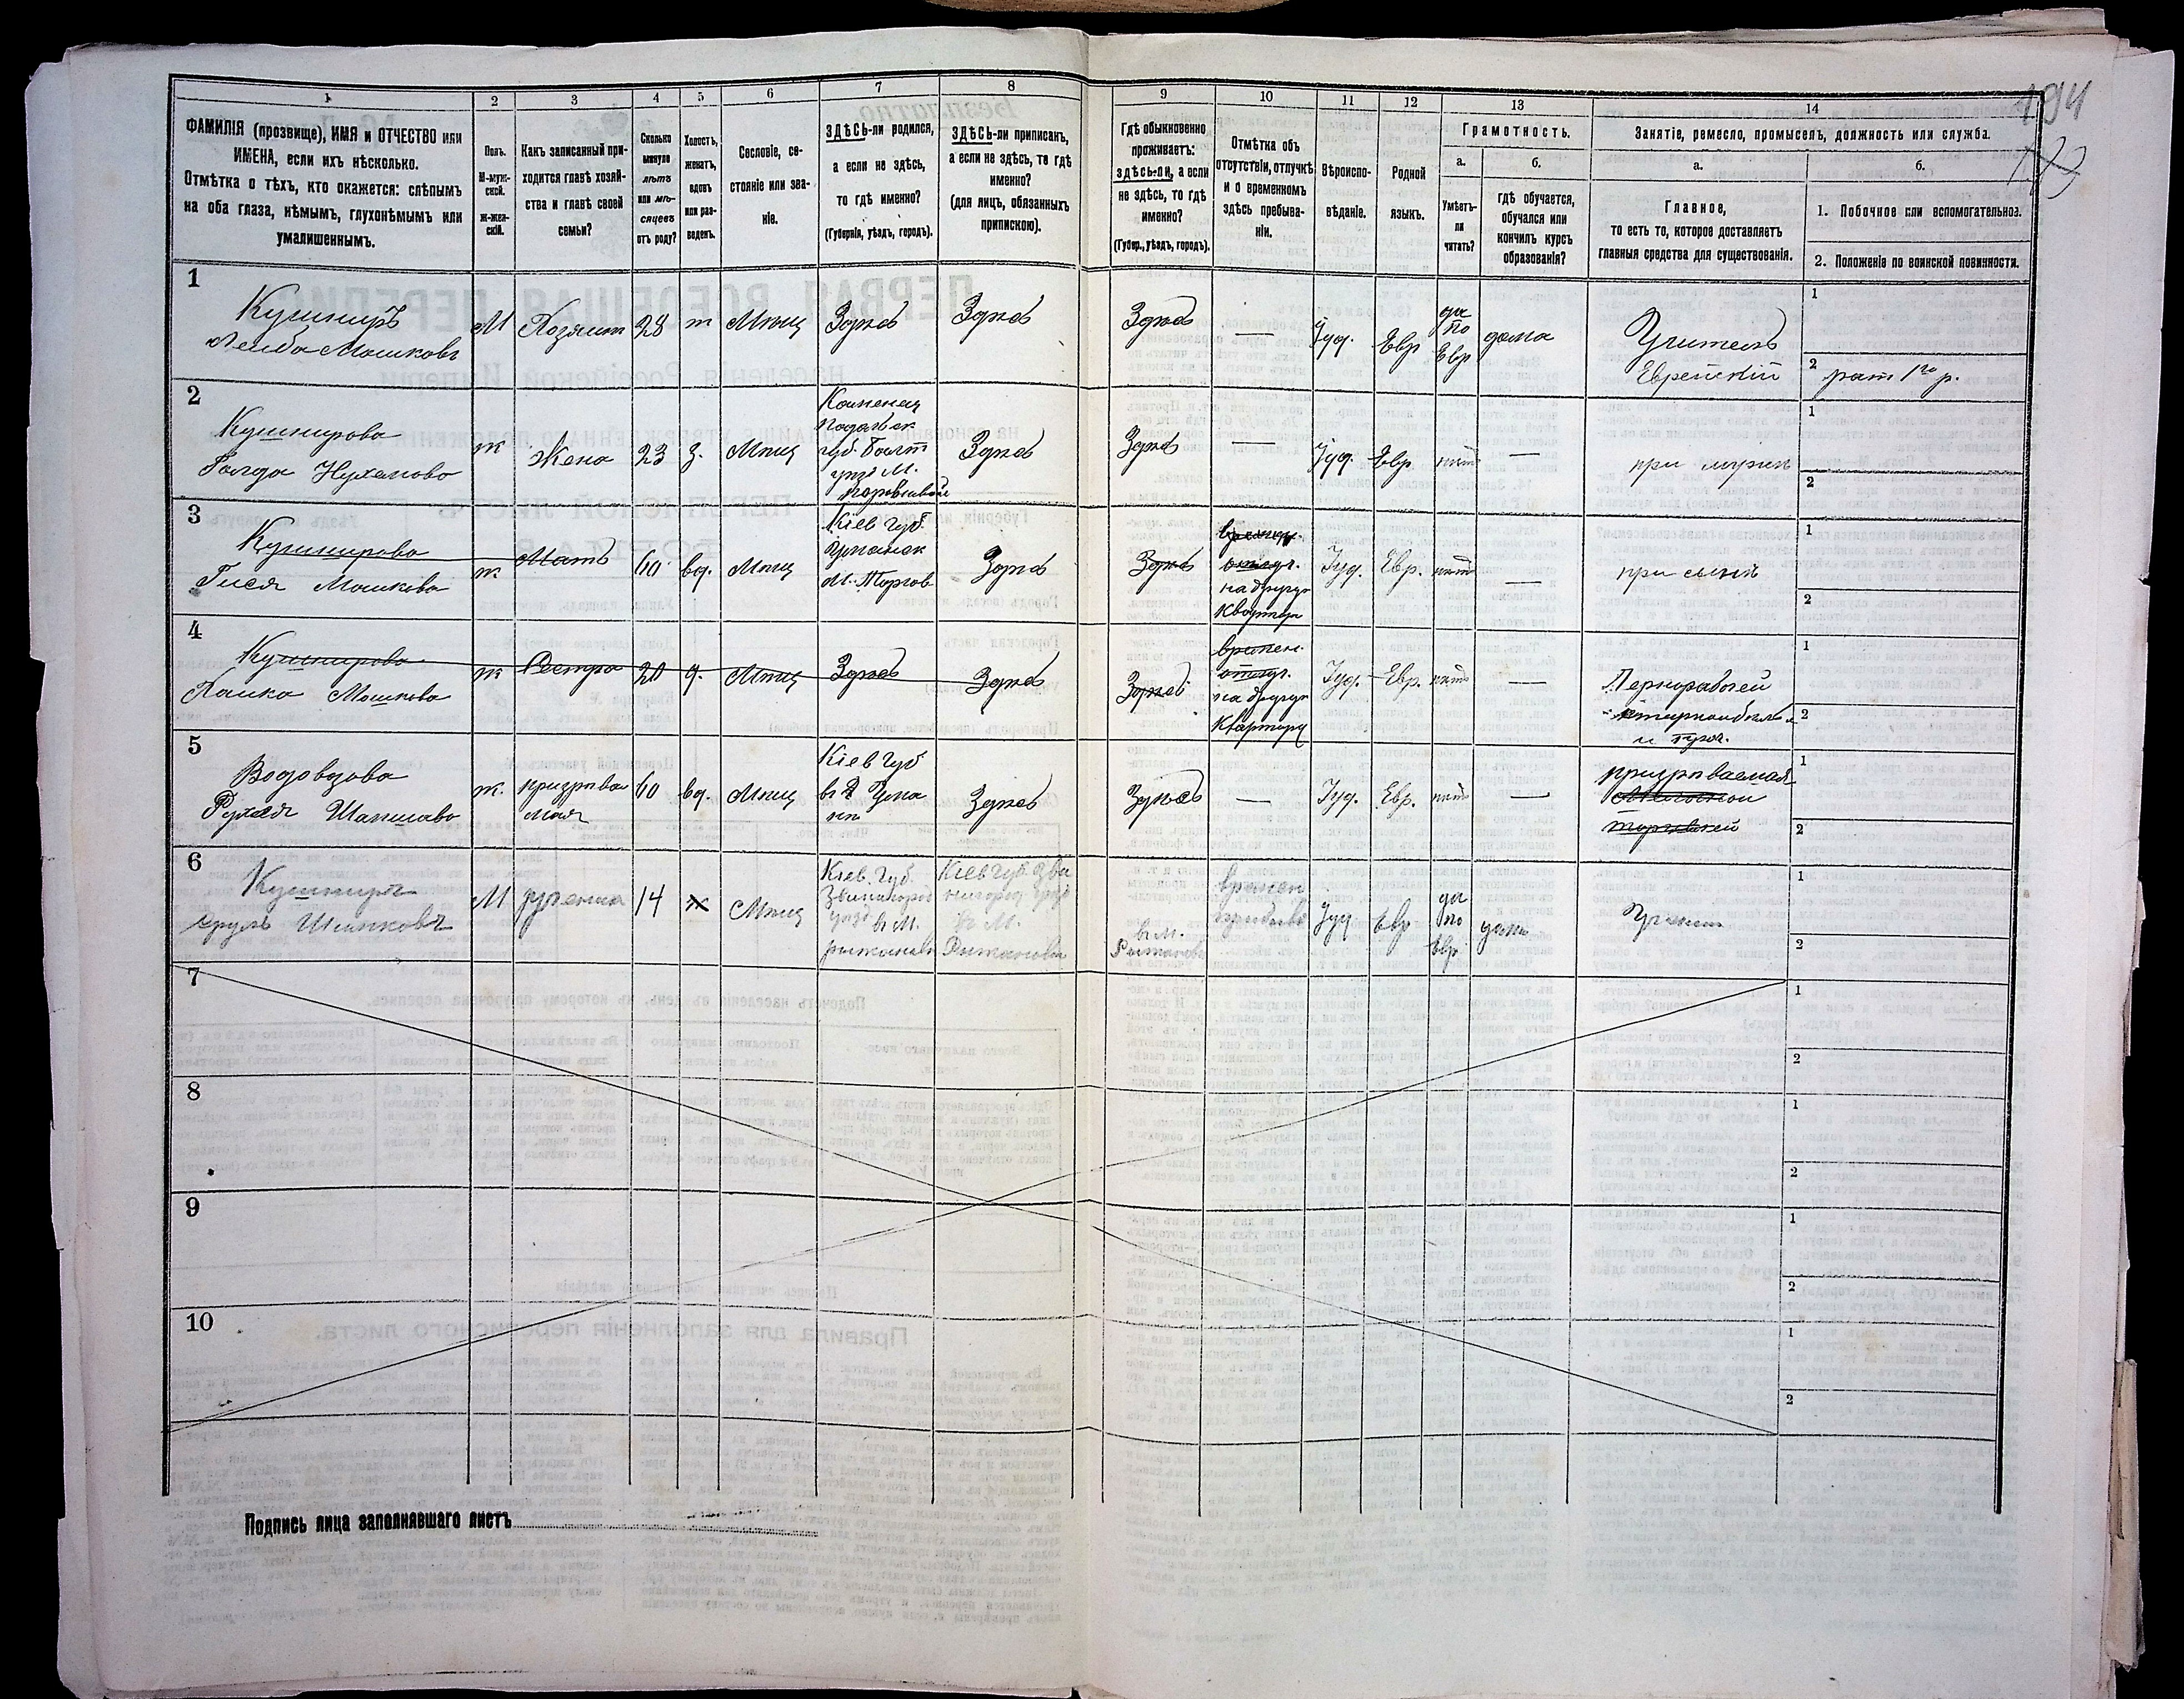 194
183
1
2
3
4
5
6
7
8
9
10
11
12
13
14
ФАМИЛІЯ (прозвище), ИМЯ и ОТЧЕСТВО или
ИМЕНА, если ихъ нѣсколько.
Отмѣтка о тѣхъ, кто окажется: слѣпымъ
на оба глаза, нѣмымъ, глухонѣмымъ или
умалишеннымъ.
Полъ.
М-муж-
ской.
Ж-жен-
скій.
Какъ записанный при-
ходится главѣ хозяй-
ства и главѣ своей
семьи?
Сколько
минуло
лѣтъ
или мѣ-
сяцевъ
отъ роду?
Холостъ,
женатъ,
вдовъ
или раз-
веденъ.
Сословіе, со-
стояніе или зва-
ніе.
ЗДѢСЬ-ли родился,
а если не здѣсь,
то гдѣ именно?
(Губернія, уѣздъ, городъ).
ЗДѢСЬ-ли приписанъ,
а если не здѣсь, то гдѣ
именно?
(для лицъ, обязанныхъ
припискою).
Гдѣ обыкновенно
проживаетъ:
здѣсь-ли, а если
не здѣсь, то гдѣ
именно?
(Губер., уѣздъ, городъ).
Отмѣтка объ
отсутствіи, отлучкѣ
и о временномъ
здѣсь пребыва-
ніи.
Вѣроиспо-
вѣданіе.
Родной
языкъ.
Грамотность.
а.
б.
Умѣетъ-
ли
читать?
гдѣ обучается,
обучался или
кончилъ курсъ
образованія?
Занятіе, ремесло, промыселъ, должность или служба.
а.
б.
Главное,
то есть то, которое доставляетъ
главныя средства для существованія.
1. Побочное или вспомогательное.
2. Положеніе по воинской повинности.
1
Кушниръ
Лейба Мошковъ
М
Хозяинъ
28
ж
Мѣщ
Здѣсь
Здѣсь
Здѣсь
—
Іуд.
Евр
да
по
Евр
дома
Учитель
Еврейскій
1
2
рат 1го р.
2
Кушнирова
Голда Нухемова
ж
Жена
23
з.
Мѣщ
Каменец
Подольск
губ. Балт
уѣз М.
Здѣсь
Здѣсь
—
Іуд.
Евр.
нѣтъ
—
при мужѣ
1
2
3
Кушнирова
Гися Мошкова
ж
Мать
60
вд.
Мѣщ
Кіев губ.
Уманск
М. Торгов
Здѣсь
Здѣсь
на другую
квартиру
Іуд.
Евр.
нѣтъ
—
при сынѣ
1
2
4
Кушнирова
Хайка Мошкова
ж
Сестра
20
д.
Мѣщ
Здѣсь
Здѣсь
Здѣсь
времен.
отлуч.
на другую
квартиру
Іуд.
Евр.
нѣтъ
—
Чернорабочей
1
2
5
Водовозова
Рухля Шапшаво
ж.
призрѣвае
мая
60
вд.
Мѣщ
Кіев губ
въ г Ума
нѣ
Здѣсь
Здѣсь
—
Іуд.
Евр.
нѣтъ
—
призрѣваемая
1
2
6
Кушниръ
Сруль Шмиковъ
М
14
х
Мѣщ
Кіев. губ.
Звенигород
уѣз
въ М.
Рыжановк
Кіев губ Зве
нигород уѣз
въ М.
Рыжановки
въ М.
Рыжановк
времен
Іуд
Евр
да
по
Евр
дома
1
2
7
1
2
8
1
2
9
1
2
10
1
2
Подпись лица заполнявшаго листъ